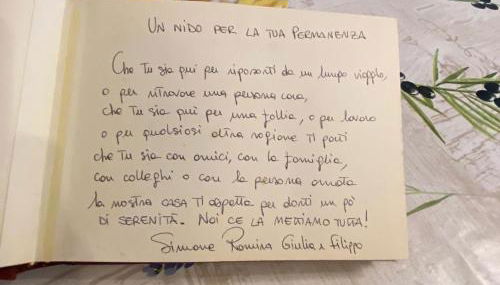 UN NIDO PER LA TUA PERMANENZA
Che Tu sia qui per riposarti da un lungo viaggio,
o per ritrovare una persona cara,
che Tu sia qui per una follia, o per lavoro
o per qualsiasi altra ragione Ti porti
che Tu sia con amici, con la famiglia,
con colleghi o con la persona amata
la nostra CASA Ti aspetta per darti un po'
DI SERENITÀ. NOI CE LA METTIAMO TUTTA!
Simone Romina Giulia e Filippo